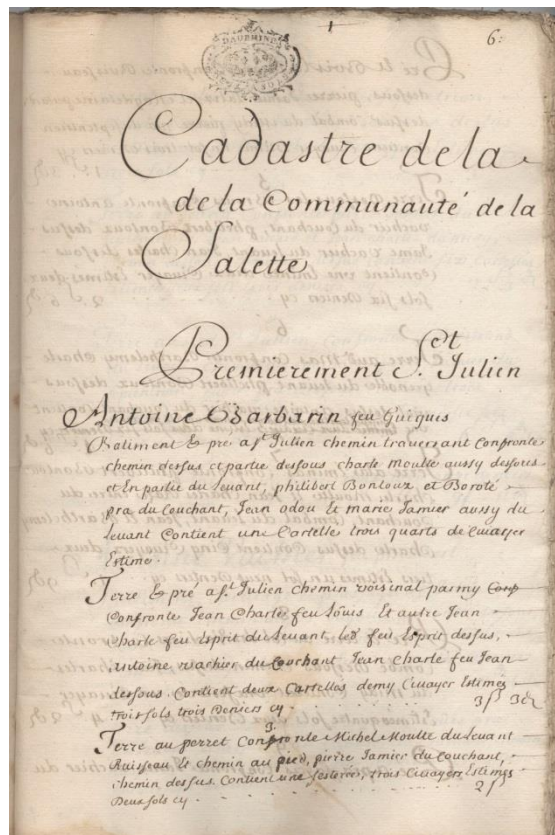 6.
DAUPHINE
Cadastre de la
de la Communauté de la
Salette
Premierement St. Julien
Antoine Barbarin feu Guigues
Batiment & pre a St. Julien chemin traversant Confronte
chemin dessus et partie dessous charle Moulte aussy dessous
et En partie du Levant, philibert Bonloux et
pra du Couchant, Jean odou et marie Jamier aussy du
Levant Contient une Cartelle trois quarts de Civayer
Estimé
Terre & pré a St. Julien chemin voisinal parmy
Confronte Jean Charle feu Louis Et autre Jean
Charle feu Esprit du Levant, led. feu Esprit dessus,
Antoine vachier du Couchant Jean Charle feu Jean
dessous. Contient deux Cartelles demy Civayer Estimés
trois sols trois Deniers cy . . . 3s 3d
3.
Terre au perret Confronte Michel Moulte du Levant
Ruisseau le chemin au pied, pierre Jamier du Couchant,
chemin dessus. Contient une sesterée, trois Civayers Estimés
Deux sols cy . . . 2s